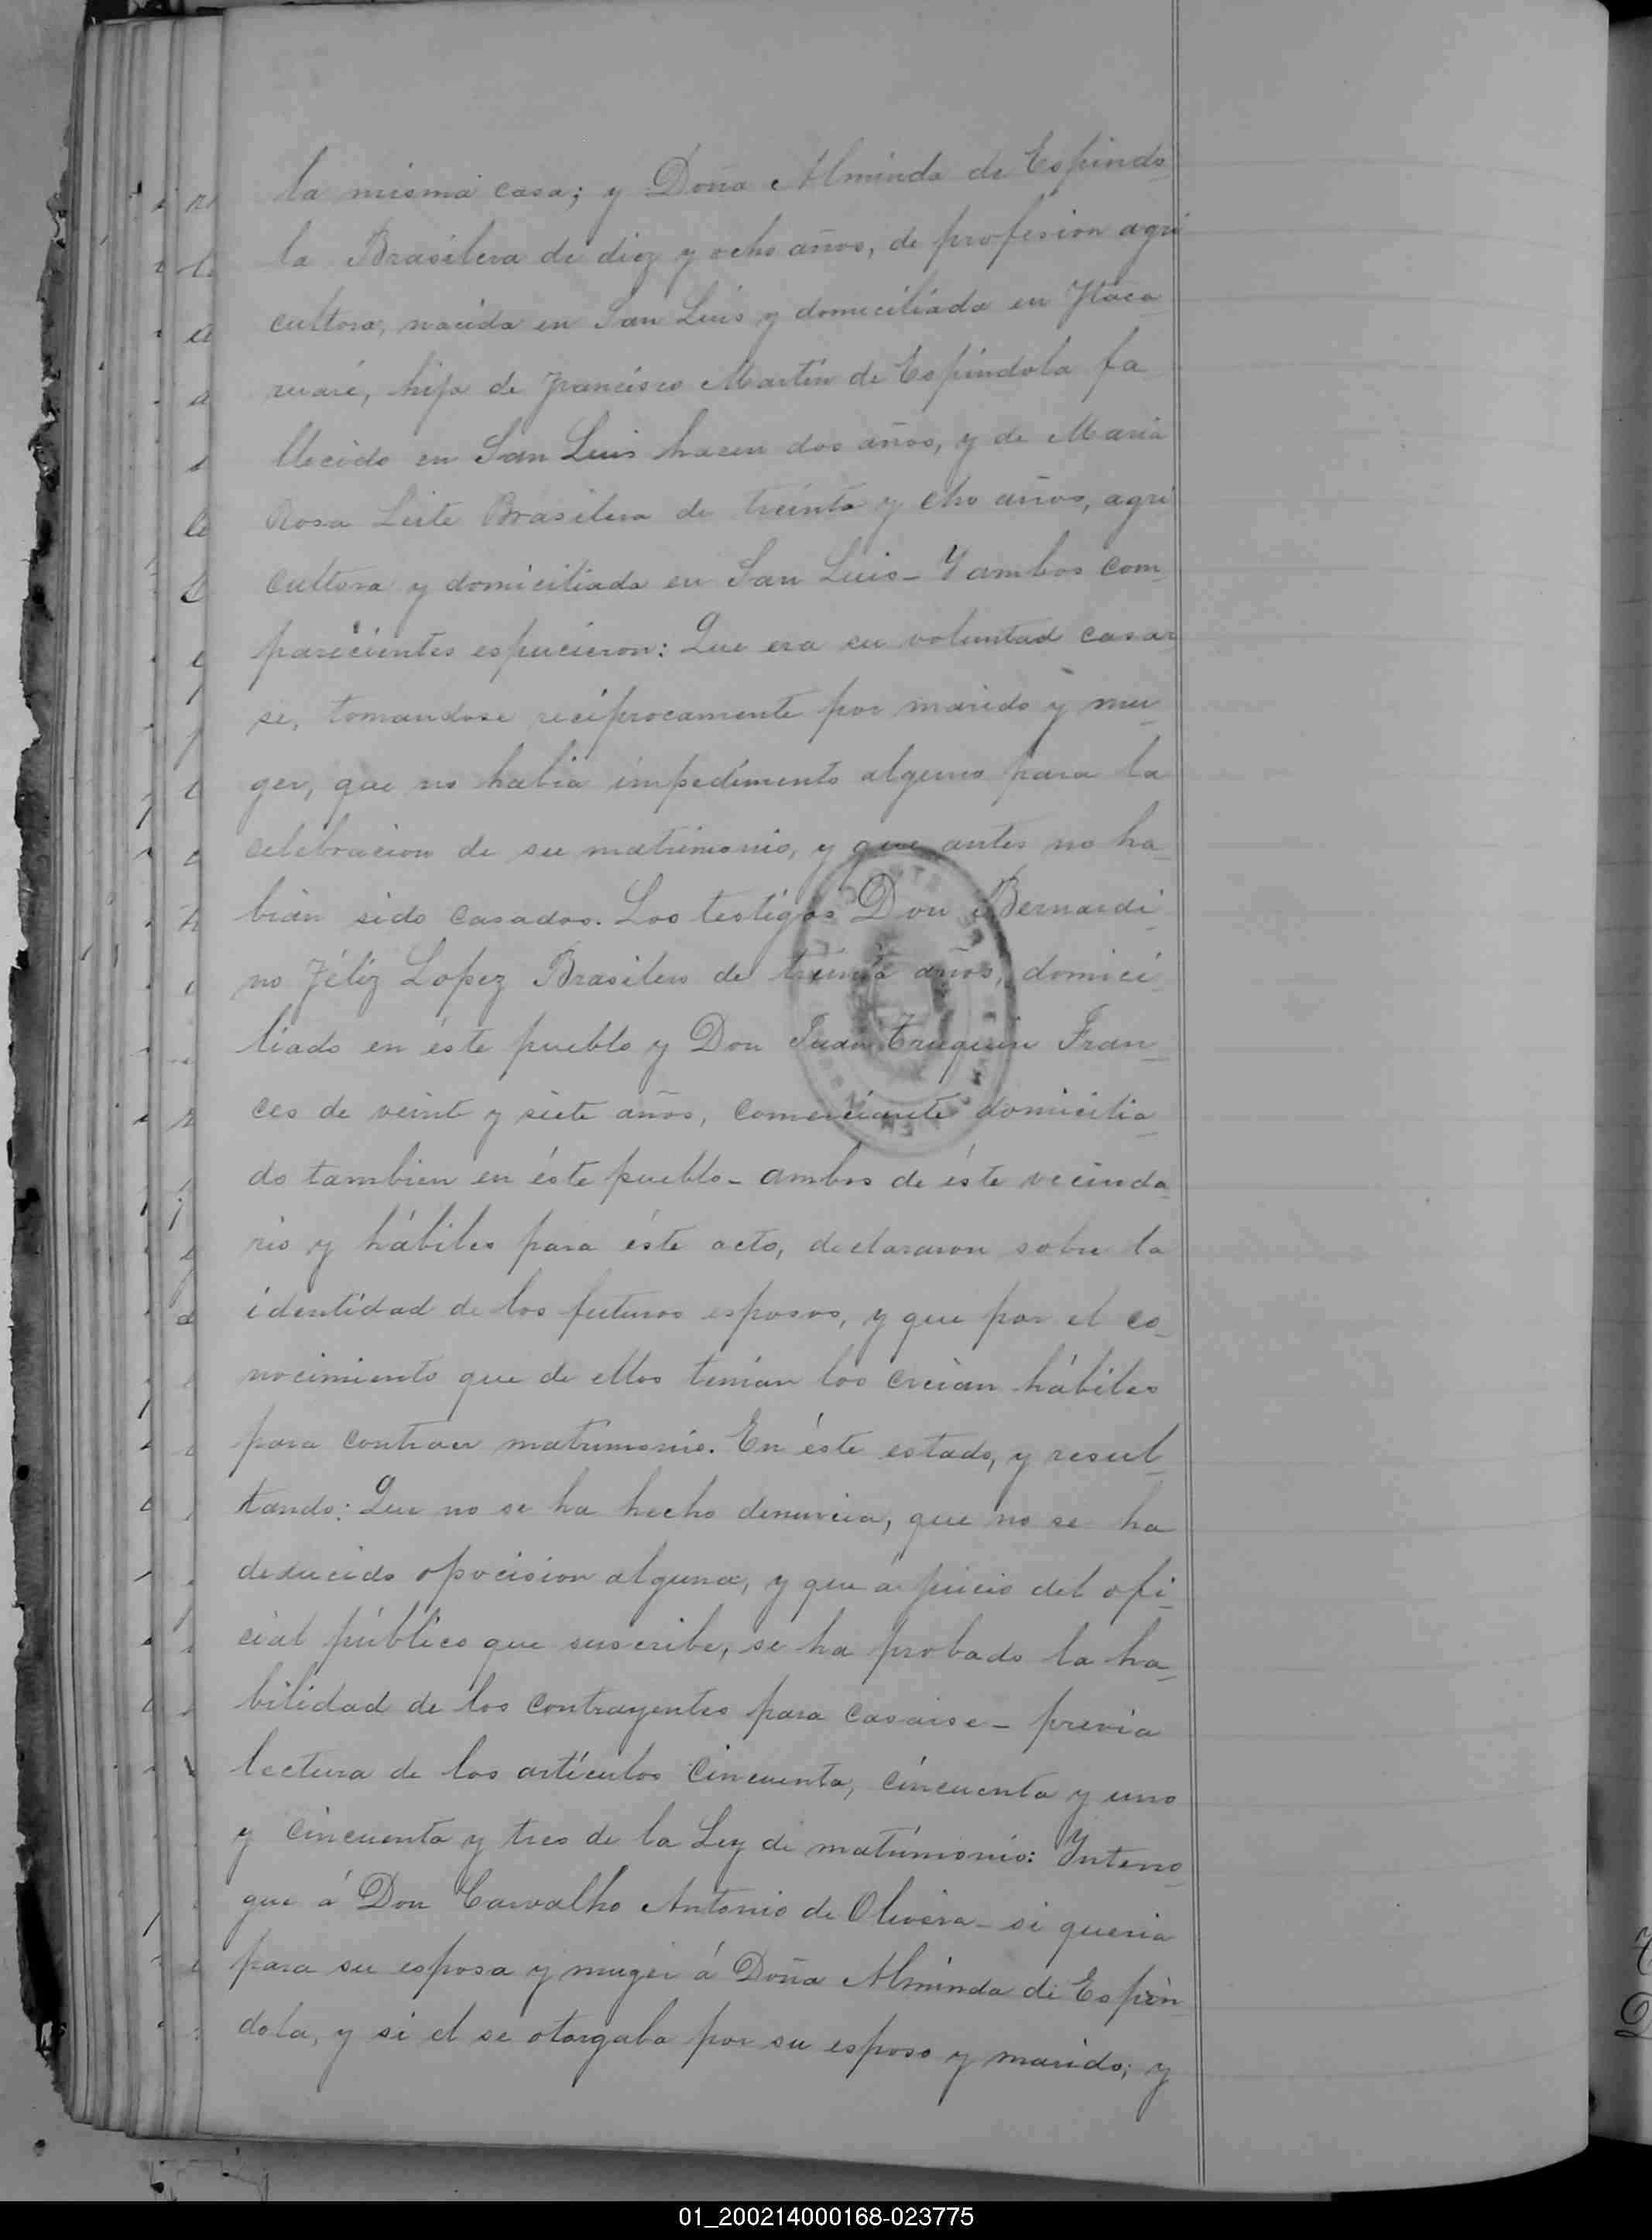 la misma casa; y Doña Alminda de Espindo
la Brasilera de diez y ocho años, de profesion agri
cultora, nacida en San Luis y domiciliada en Ytaca
ruaré, hija de Francisco Martin de Espindola fa
llecido en San Luis hacen dos años, y de Maria
Rosa Leite Brasilera de treinta y cho años, agri
cultora y domiciliada en San Luis - Y ambos com_
parecientes espucieron: Que era su voluntad casar
se, tomandose reciprocamente por marido y mu_
ger, que no habia impedimento alguno para la
celebracion de su matrimonio, y que antes no ha_
bian sido casados. Los testigos Don Bernardi_
no Féliz Lopez Brasilero de treinta años, domici_
liado en éste pueblo y Don Juan Truquin Fran_
ces de veinte y siete años, comerciante domicilia_
do tambien en éste pueblo - ambos de éste vecinda_
rio y hábiles para éste acto, declararon sobre la
identidad de los futuros esposos, y que por el co_
nocimiento que de ellos tenian los creian hábiles
para contraer matrimonio. En éste estado, y resul_
tando: Que no se ha hecho denuncia, que no se ha
deducido oposicion alguna, y que á juicio del ofi_
cial público que suscribe, se ha probado la ha_
bilidad de los contrayentes para casarse - previa
lectura de los artículos cincuenta, cincuenta y uno
y cincuenta y tres de la Ley de matrimonio: Ynterro_
gue á Don Carvalho Antonio de Olivera - si queria
para su esposa y muger á Doña Alminda de Espin_
dola, y si el se otorgaba por su esposo y marido; y
01_200214000168-023775